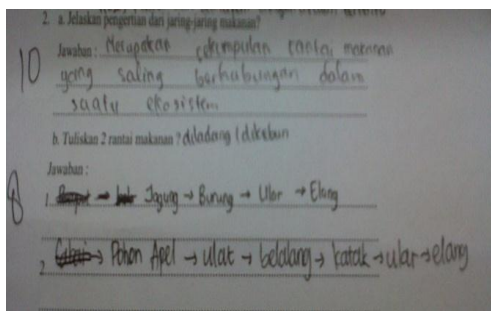 2. a. Jelaskan pengertian dari jaring-jaring makanan?
Jawaban : Merupakan sekumpulan rantai makanan
10
yang saling berhubungan dalam
suatu ekosistem
b. Tuliskan 2 rantai makanan ? diladang / dikebun
Jawaban :
8
1. Jagung → Burung → Ular → Elang
2. → Pohon Apel → ulat → belalang → katak → ular → elang